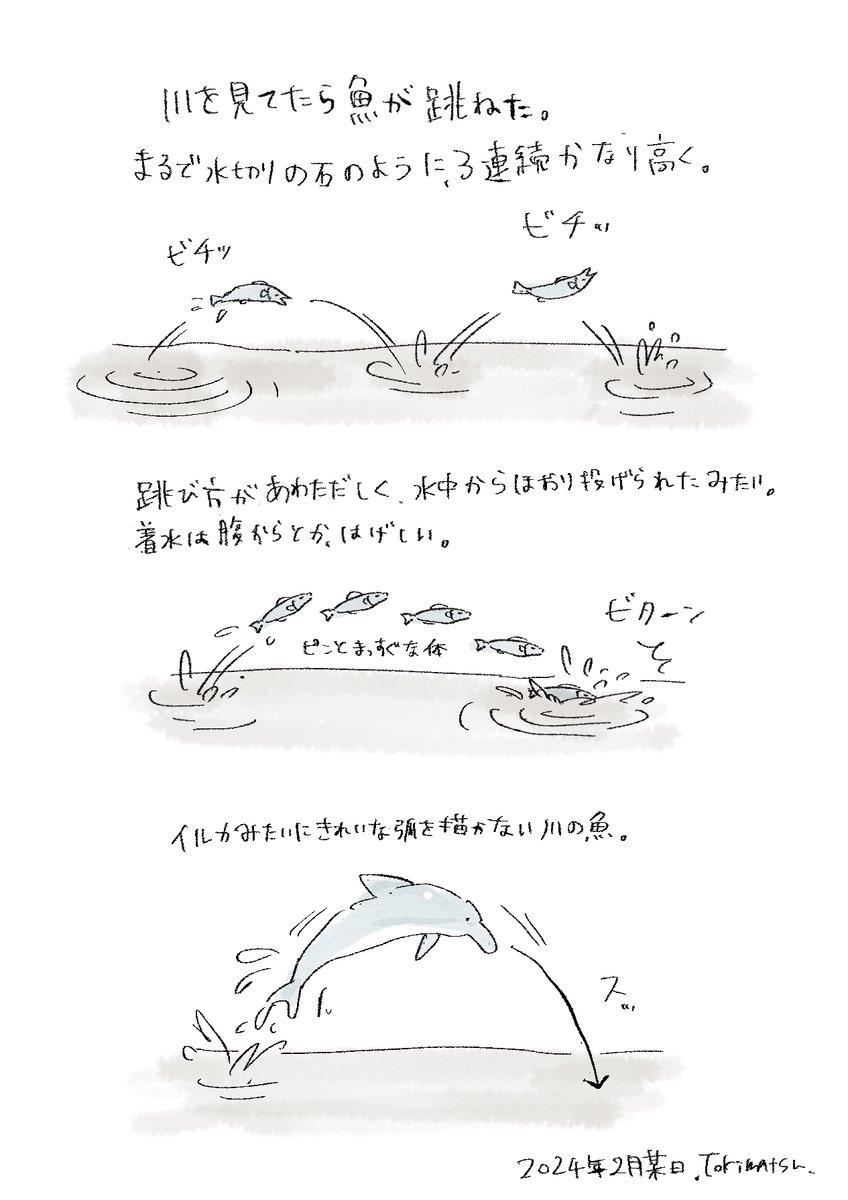 川を見てたら魚が跳ねた。
まるで水切りの石のように、3連続かなり高く。
ビチッ
ビチッ
跳び方があわただしく、水中からほおり投げられたみたい。
着水は腹からとか、はげしい。
ピンとまっすぐな体
ビターン
イルカみたいにきれいな弧を描かない川の魚。
スッ
2024年2月某日.Tokimatsu.